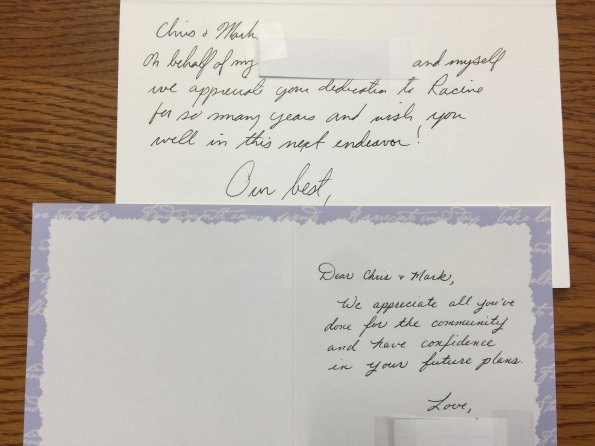 Chris + Mark,
On behalf of my and myself
we appreciate your dedication to Racine
for so many years and wish you
well in this next endeavor!
Our best,
Dear Chris + Mark,
We appreciate all you've
done for the community
and have confidence
in your future plans.
Love,